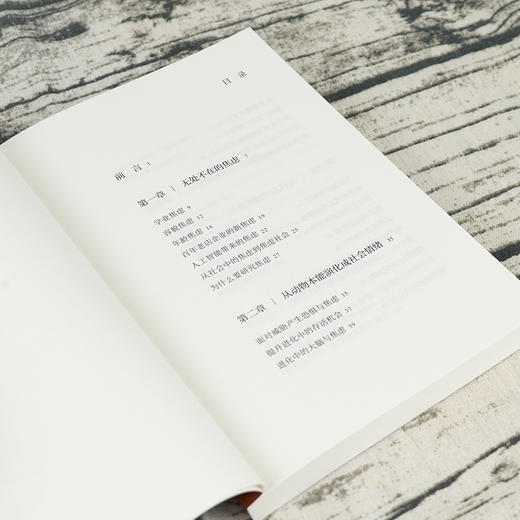 目 录
前 言 1
第一章 | 无处不在的焦虑 7
学业焦虑 9
容貌焦虑 12
年龄焦虑 16
百年老店企业的新焦虑 19
人工智能带来的焦虑 22
从社会中的焦虑到焦虑社会 25
为什么要研究焦虑 27
第二章 | 从动物本能演化成社会情绪 33
面对威胁产生恐惧与焦虑 35
提升进化中的存活机会 38
进化中的大脑与焦虑 39